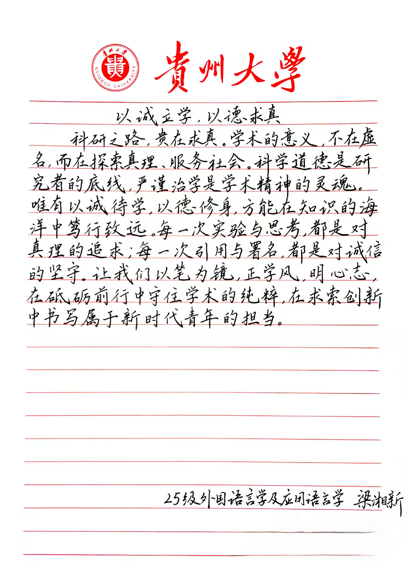 贵州大学
以诚立学,以德求真
科研之路,贵在求真。学术的意义,不在虚
名,而在探索真理、服务社会。科学道德是研
究者的底线,严谨治学是学术精神的灵魂。
唯有以诚待学,以德修身,方能在知识的海
洋中笃行致远。每一次实验与思考,都是对
真理的追求;每一次引用与署名,都是对诚信
的坚守。让我们以笔为镜,正学风,明心志,
在砥砺前行中守住学术的纯粹,在求索创新
中书写属于新时代青年的担当。
25级外国语言学及应用语言学 梁湘新